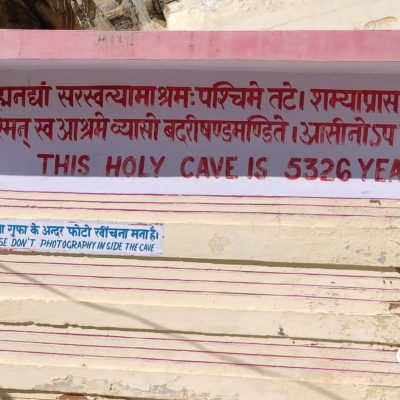 ह्मनद्यां सरस्वत्यामाश्रमः पश्चिमे तटे। शम्याप्रास
स्मिन् स्व आश्रमे व्यासो बदरीषण्डमण्डिते। आसीनोऽप
THIS HOLY CAVE IS 5326 YEA
गुफा के अन्दर फोटो खींचना मना है।
SE DON'T PHOTOGRAPHY INSIDE THE CAVE